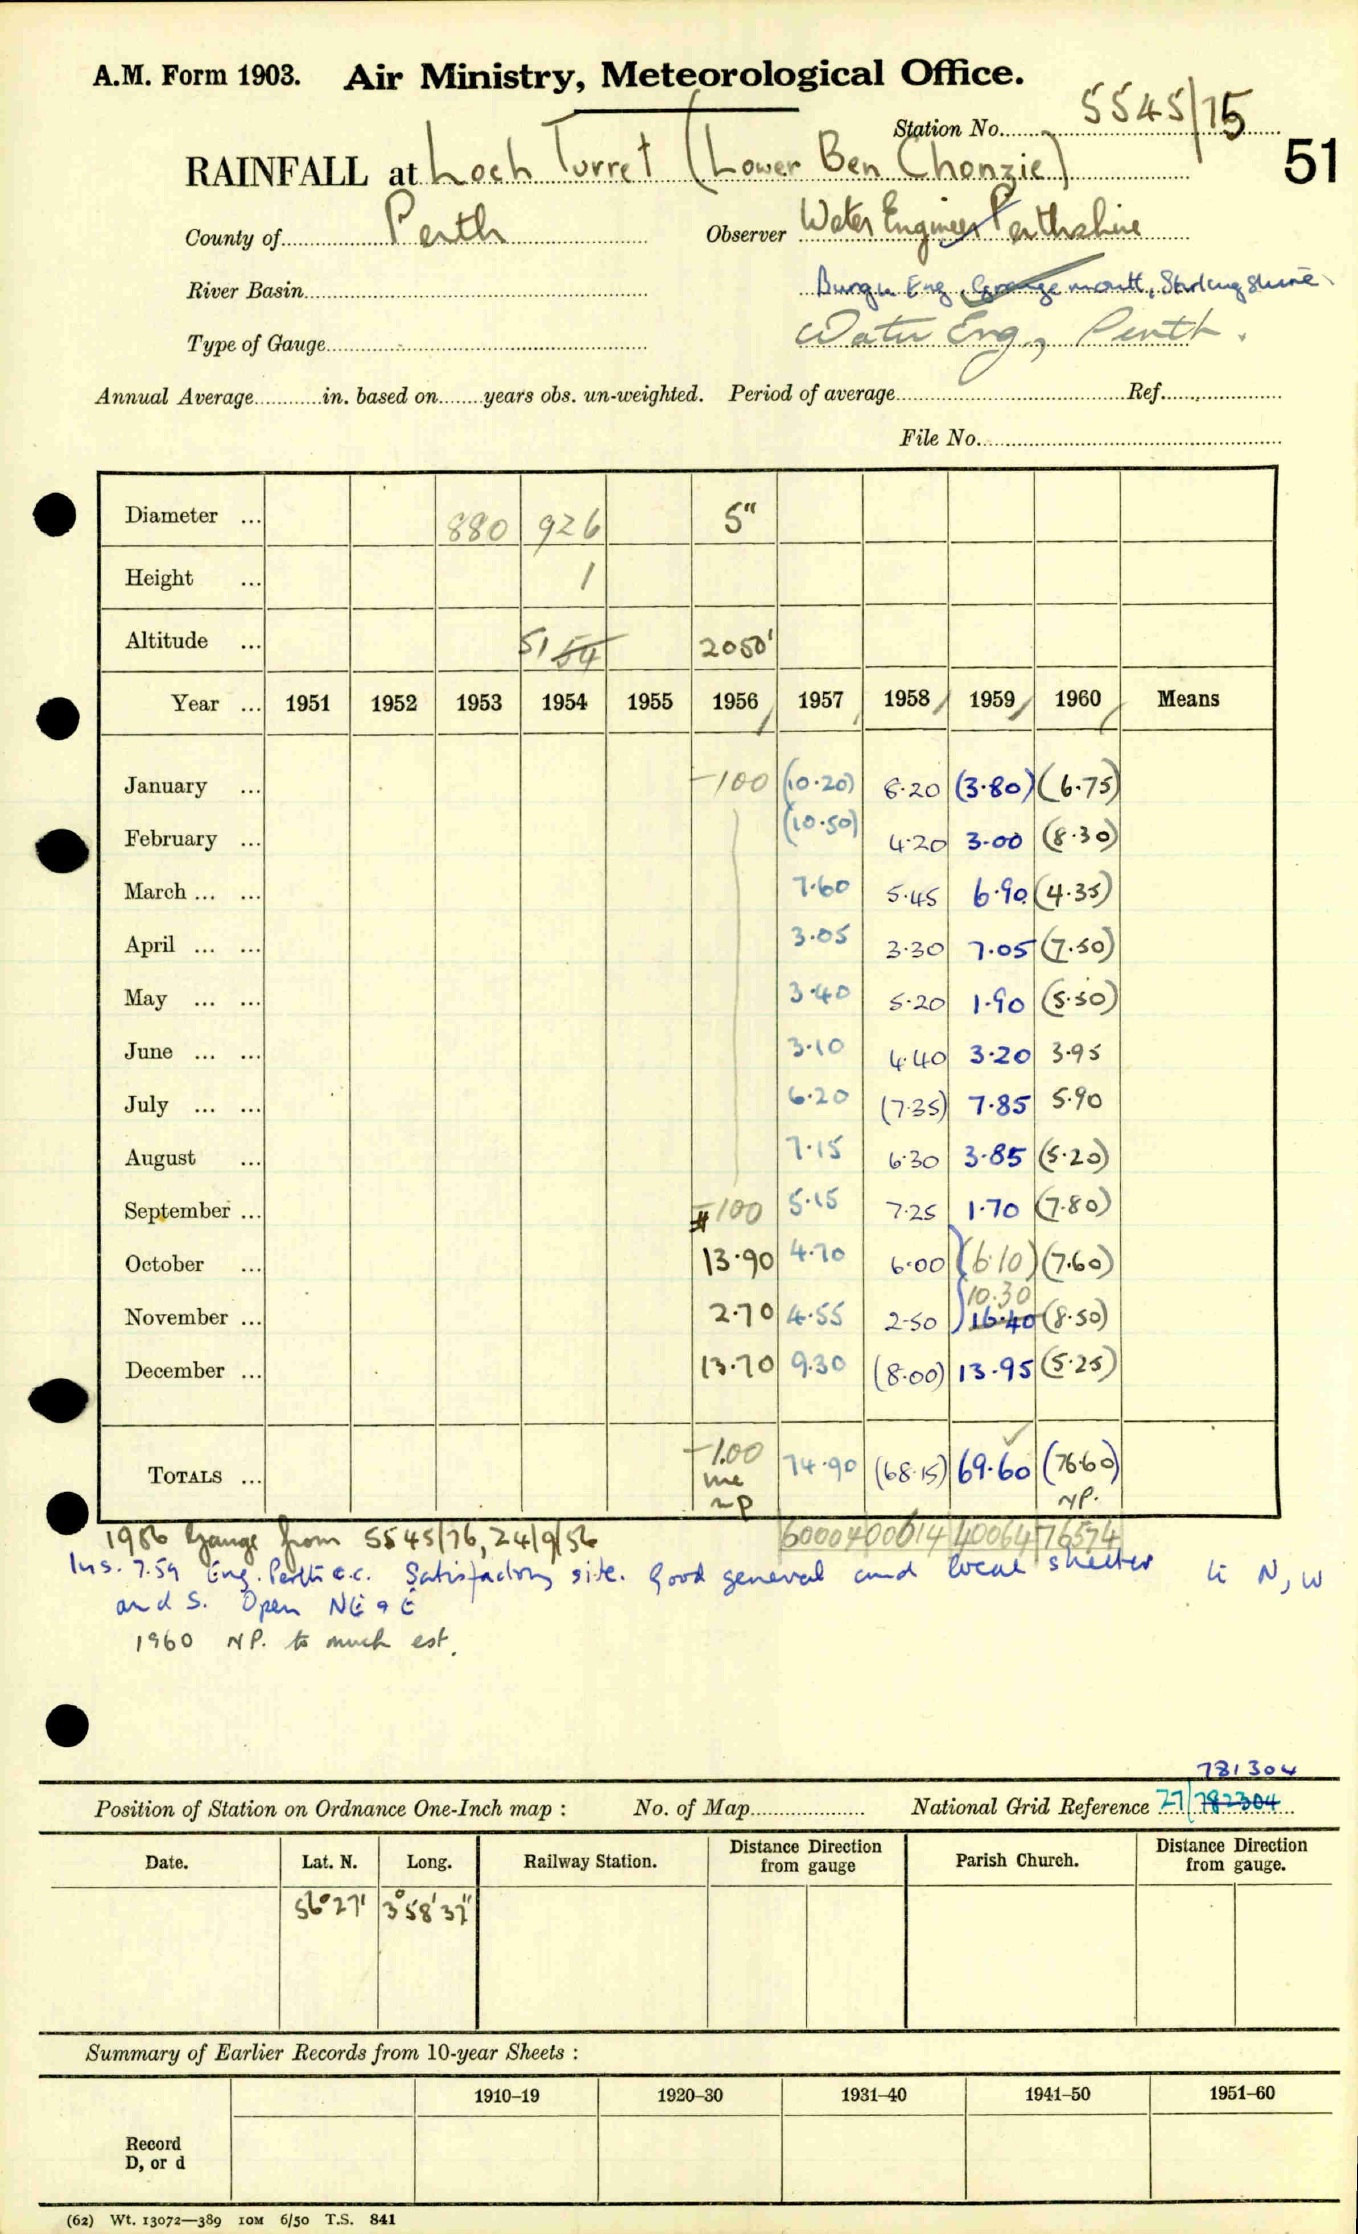 A.M. Form 1903. Air Ministry, Meteorological Office.
Station No. 5545/15
RAINFALL at Loch Turret (Lower Ben Chonzie) 51
County of Perth Observer Water Engineer Perthshire
River Basin Burgh Eng. Grangemouth, Stirlingshire
Type of Gauge Water Eng, Perth.
Annual Average in. based on years obs. un-weighted. Period of average Ref.
File No.
Diameter ... 880 926 5"
Height ... 1
Altitude ... 51 54 2050'
Year ... 1951 1952 1953 1954 1955 1956 1957 1958 1959 1960 Means
January ... -100 (10.20) 8.20 (3.80) (6.75)
February ... (10.50) 4.20 3.00 (8.30)
March ... ... 7.60 5.45 6.90 (4.35)
April ... ... 3.05 3.30 7.05 (7.50)
May ... ... 3.40 5.20 1.90 (5.50)
June ... ... 3.10 4.40 3.20 3.95
July ... ... 6.20 (7.35) 7.85 5.90
August ... 7.15 6.30 3.85 (5.20)
September ... -100 5.15 7.25 1.70 (7.80)
October ... 13.90 4.70 6.00 (6.10) (7.60)
10.30
November ... 2.70 4.55 2.50 16.40 (8.50)
December ... 13.70 9.30 (8.00) 13.95 (5.25)
TOTALS ... -1.00 74.90 (68.15) 69.60 (76.60)
NP.
60004 00614 40064 76574
1956 Gauge from 5545/76, 24/9/56
Ins. 7.59 Eng. Perth C.C. Satisfactory site. Good general and local shelter to N, W
and S. Open NE & E
1960 NP. to much est.
781304
Position of Station on Ordnance One-Inch map : No. of Map National Grid Reference 27/782304
Date. Lat. N. Long. Railway Station. Distance from gauge Direction Parish Church. Distance from gauge. Direction
56° 27' 3° 58' 37"
Summary of Earlier Records from 10-year Sheets :
1910–19 1920–30 1931–40 1941–50 1951–60
Record
D, or d
(62) Wt. 13072—389 10M 6/50 T.S. 841